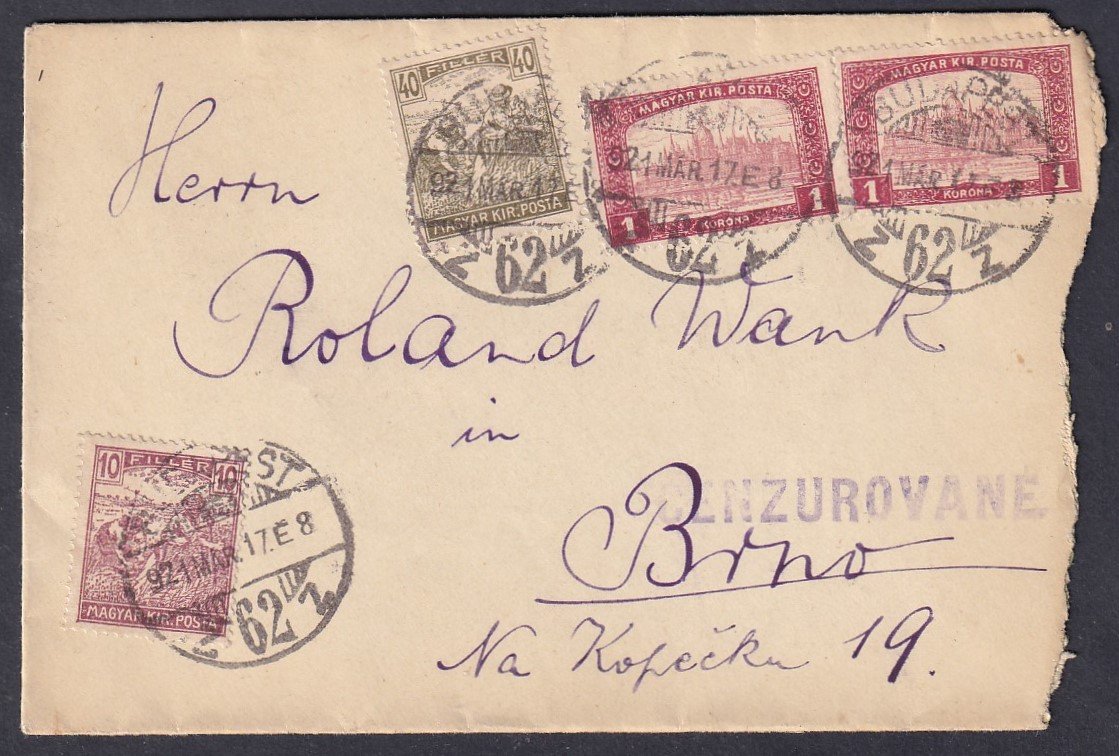 40 FILLÉR 40
MAGYAR KIR. POSTA
MAGYAR KIR. POSTA
1 KORONA 1
MAGYAR KIR. POSTA
1 KORONA 1
921 MÁR. 17. E 8
62
921 MÁR. 17. E 8
62
BUDAPEST
921 MÁR. 17. E 8
62
Herrn
Roland Wank
in
CENZUROVANÉ
Brno
Na Kopečku 19.
10 FILLÉR 10
MAGYAR KIR. POSTA
921 MÁR. 17. E 8
62